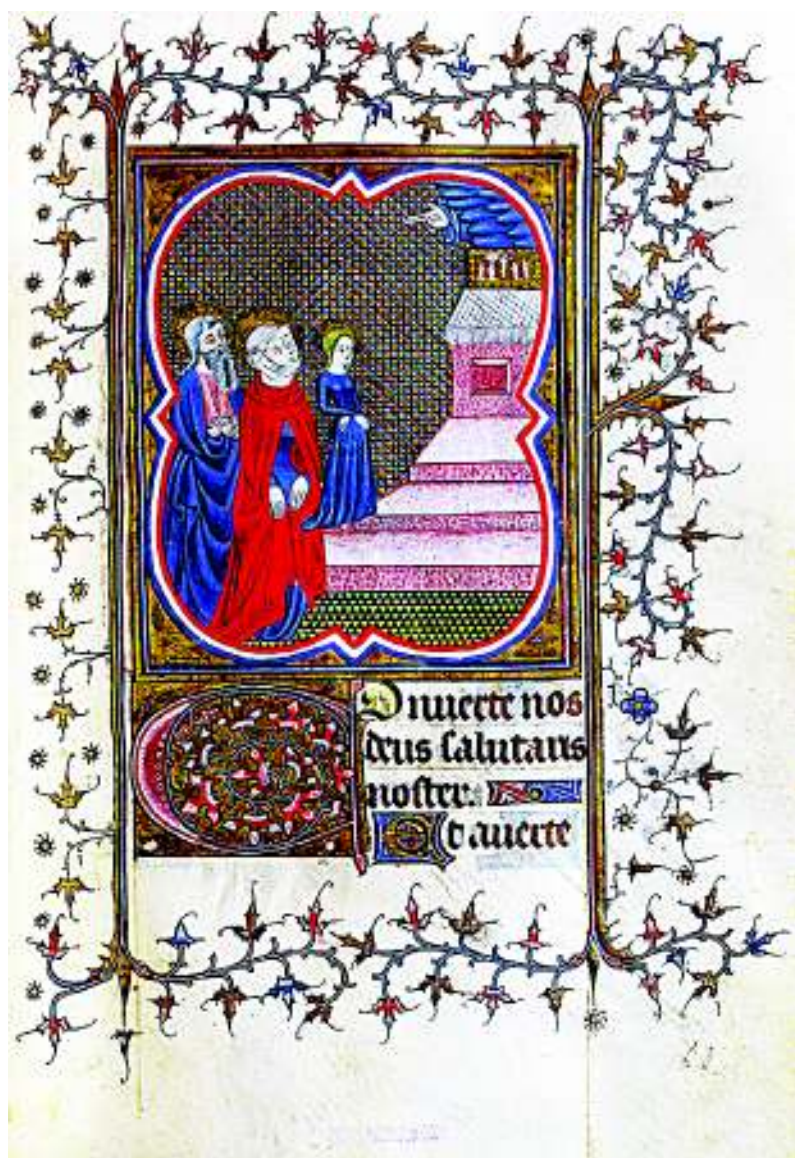 COnuerte nos
deus salutaris
noster.
Et auerte